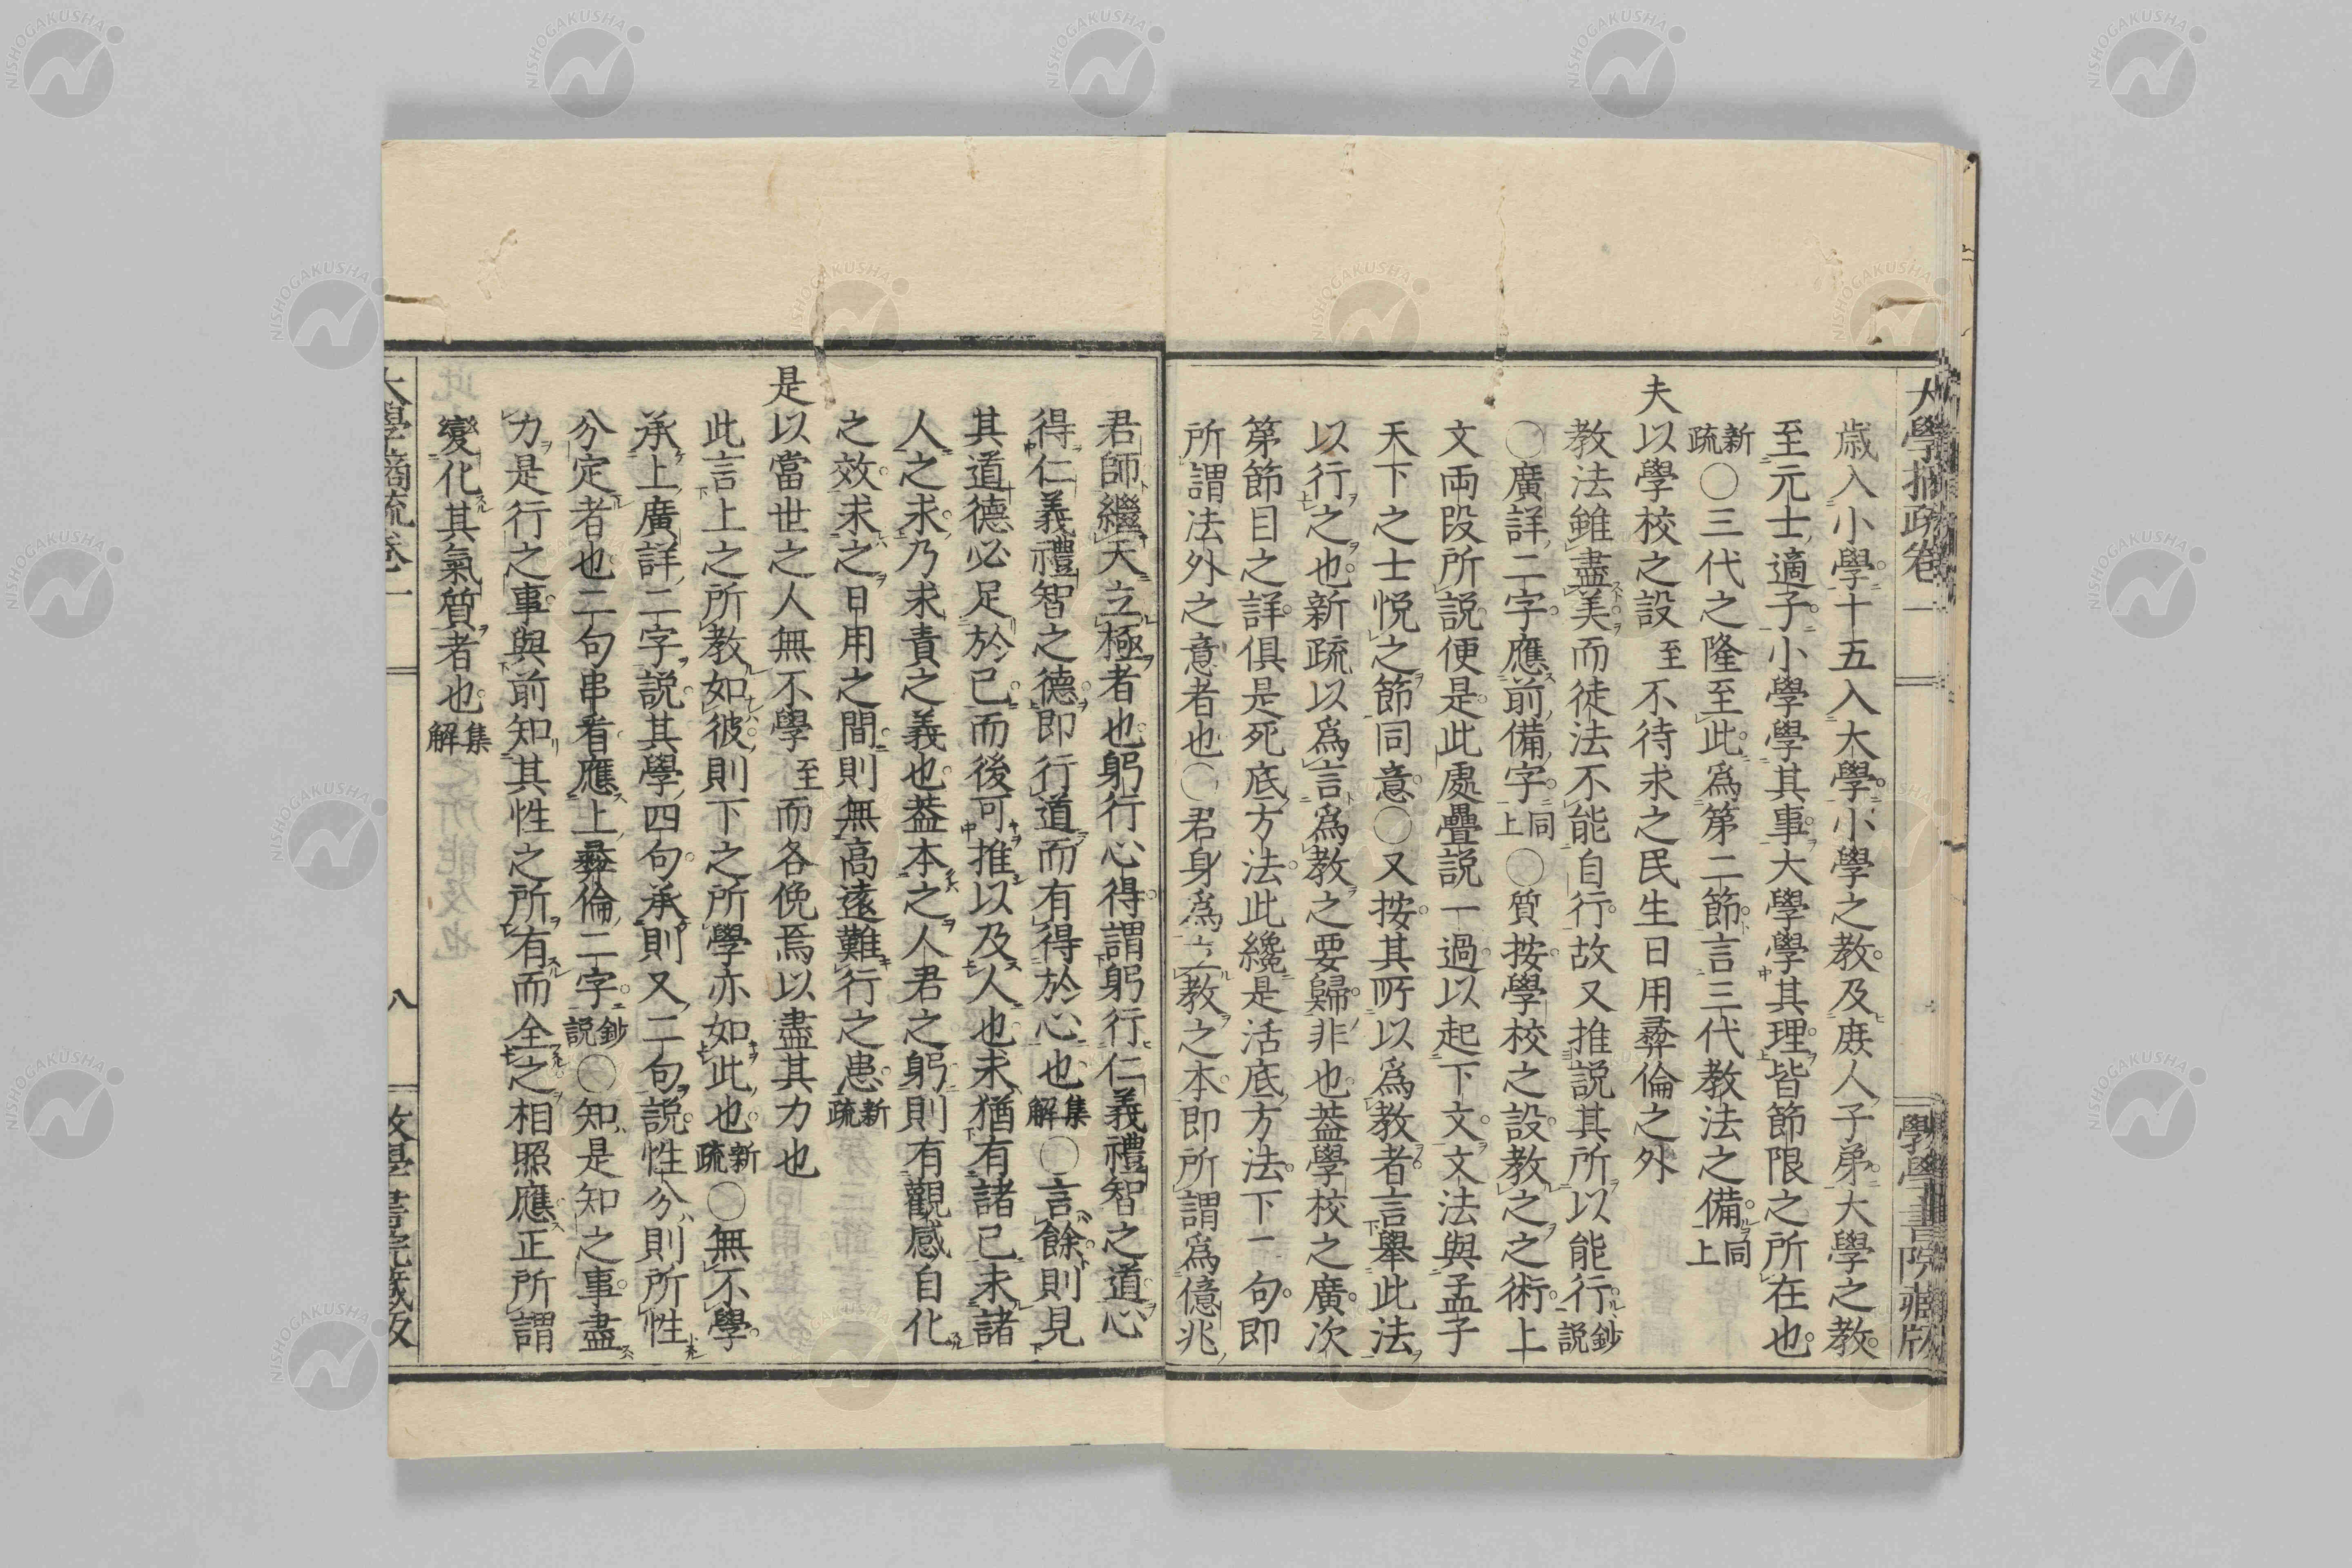 大學摘疏卷一
歳入小學十五入大學小學之教及庶人子弟大學之教
至元士適子小學學其事大學學其理皆節限之所在也
新疏〇三代之隆至此爲第二節言三代教法之備同上
夫以學校之設至不待求之民生日用彝倫之外
教法雖盡美而徒法不能自行故又推説其所以能行鈔説
〇廣詳二字應前備字同上〇質按學校之設教之之術上
文両段所説便是此處疊説一過以起下文文法與孟子
天下之士悦之節同意〇又按其所以爲教者言舉此法
以行之也新疏以爲言爲教之要歸非也葢學校之廣次
第節目之詳俱是死底方法此纔是活底方法下二句即
所謂法外之意者也〇君身爲立教之本即所謂爲億兆
學書院藏版
君師繼天立極者也躬行心得謂躬行仁義禮智之道心
得仁義禮智之德即行道而有得於心也集解〇言餘則見
其道德必足於己而後可推以及人也求猶有諸己求諸
人之求乃求責之義也葢本之人君之躬則有觀感自化
之效求之日用之間則無高遠難行之患新疏
是以當世之人無不學至而各俛焉以盡其力也
此言上之所教如彼則下之所學亦如此也新疏〇無不學
承上廣詳二字説其學四句承則又二句説性分則所性
分定者也二句串看應上彝倫二字鈔説〇知是知之事盡
力是行之事與前知其性之所有而全之相照應正所謂
變化其氣質者也集解
大學摘疏卷一
八
學書院藏版
NISHOGAKUSHA